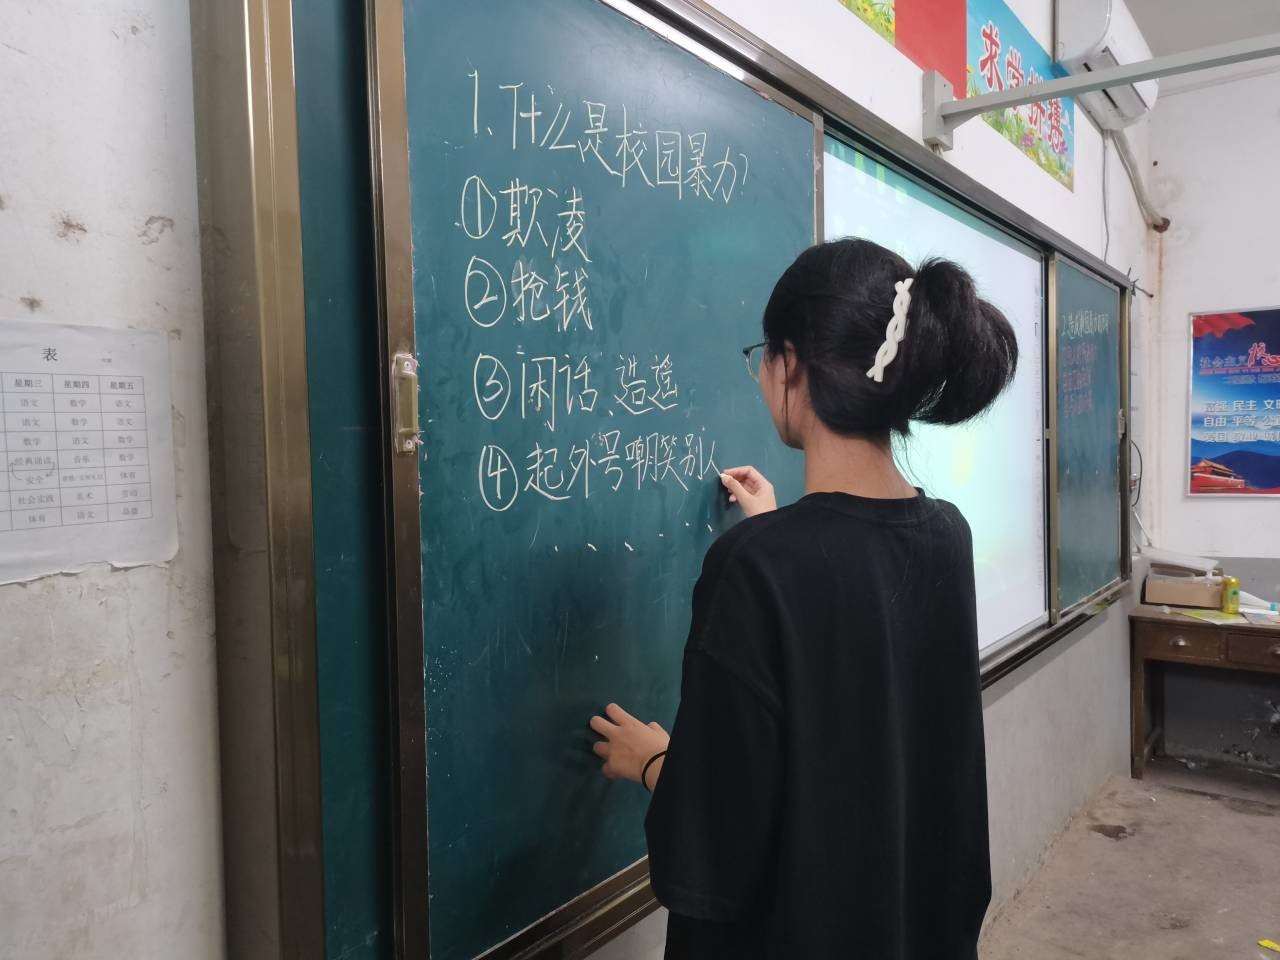 表
星期三 星期四 星期五
语文 数学 语文
语文 数学 语文
数学 语文 数学
经典诵读 音乐 数学
安全 体育
社会实践 美术 劳动
体育 语文 品德
1、什么是校园暴力?
①欺凌
②抢钱
③闲话、造遥
④起外号嘲笑别人
求学拼搏
社会主义核心
富强 民主 文明
自由 平等 公正
爱国 敬业 诚信